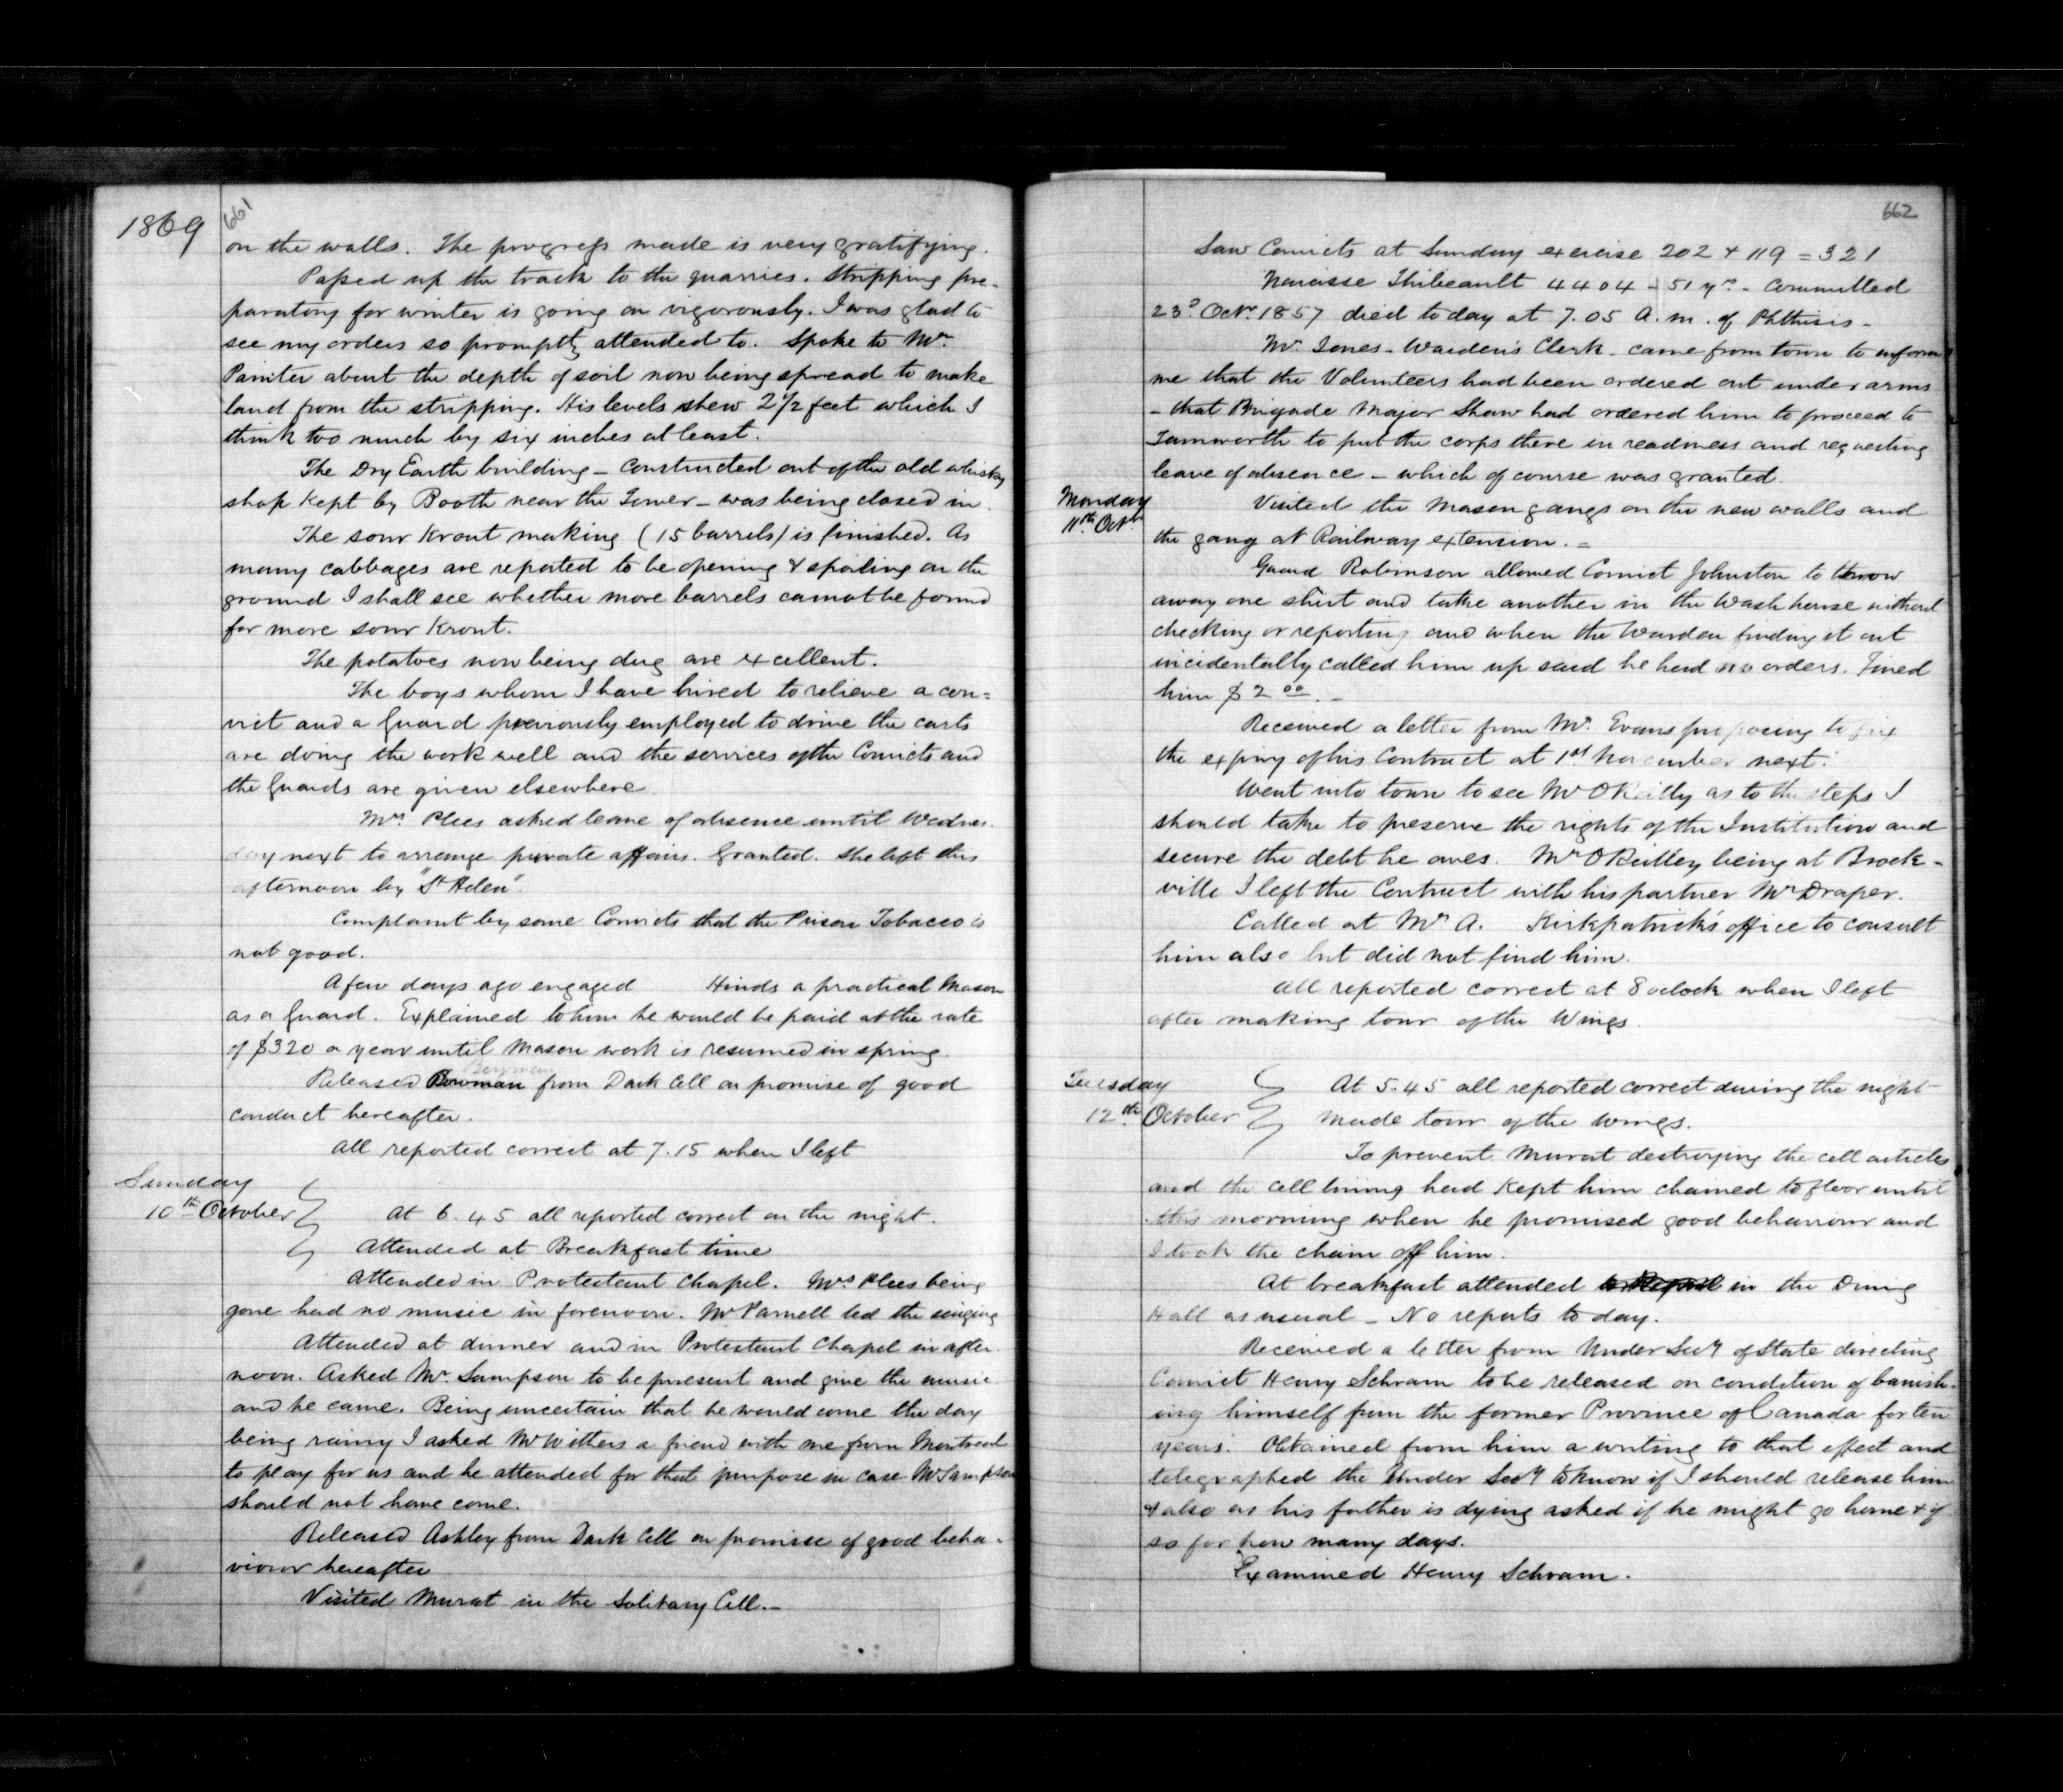 1869
661
on the walls. The progress made is very gratifying.
Passed up the track to the quarries. Stripping pre-
paratory for winter is going on vigorously. I was glad to
see my orders so promptly attended to. Spoke to Mr.
Painter about the depth of soil now being spread to make
land from the stripping. His levels shew 2 1/2 feet which I
think too much by six inches at least.
The Dry Earth building - constructed out of the old whisky
shop kept by Booth near the Tower - was being closed in.
The sour Krout making (15 barrels) is finished. As
many cabbages are reported to be opening & spoiling on the
ground I shall see whether more barrels cannot be found
for more sour Krout.
The potatoes now being dug are excellent.
The boys whom I have hired to relieve a con=
vict and a Guard previously employed to drive the carts
are doing the work well and the services of the Convicts and
the Guards are given elsewhere
Mrs. Plees asked leave of absence until Wednes-
day next to arrange private affairs. Granted. She left this
afternoon by "St Helen".
Complaint by some Convicts that the Prison Tobacco is
not good.
A few days ago engaged Hinds a practical Mason
as a Guard. Explained to him he would be paid at the rate
of $320 a year until Mason work is resumed in spring.
Released Bowman from Dark Cell on promise of good
conduct hereafter.
All reported correct at 7.15 when I left
Sunday
10th October
At 6.45 all reported correct on the night.
Attended at Breakfast time
Attended in Protestant Chapel. Mrs Plees being
gone had no music in forenoon. Mr Parnell led the singing
Attended at dinner and in Protestant Chapel in after-
noon. Asked Mr. Sampson to be present and give the music
and he came. Being uncertain that he would come the day
being rainy I asked Mr Withers a friend with me from Montreal
to play for us and he attended for that purpose in case Mr Sampson
should not have come.
Released Ashley from Dark Cell on promise of good beha-
viour hereafter
Visited Murat in the Solitary Cell.-
662
Saw Convicts at Sunday exercise 202 + 119 = 321
Narcisse Thibeault 4404 - 51 yrs. - Committed
23d Octr. 1857 died today at 7.05 A.m. of Phthisis -
Mr. Jones - Warden's Clerk - came from town to inform
me that the Volunteers had been ordered out under arms
- that Brigade Major Shaw had ordered him to proceed to
Tamworth to put the corps there in readiness and requesting
leave of absence - which of course was granted.
Monday
11th Octr
Visited the Mason gangs on the new walls and
the gang at Railway extension. =
Guard Robinson allowed Convict Johnston to throw
away one shirt and take another in the Wash house without
checking or reporting and when the Warden finding it out
incidentally called him up said he had no orders. Fined
him $2 00. -
Received a letter from Mr. Evans proposing to fix
the expiry of his Contract at 1st November next.
Went into town to see Mr O'Reilly as to the steps I
should take to preserve the rights of the Institution and
secure the debt he owes. Mr O'Reilley being at Brock-
ville I left the Contract with his partner Mr Draper.
Called at Mr A. Kirkpatrick's office to consult
him also but did not find him.
All reported correct at 8 oclock when I left
after making tour of the Wings.
Tuesday
12th October
At 5.45 all reported correct during the night
Made tour of the wings.
To prevent Murat destroying the cell articles
and the cell lining had kept him chained to floor until
this morning when he promised good behaviour and
I took the chain off him.
At breakfast attended in the Dining
Hall as usual - No reports to day.
Received a letter from Under Secy of State directing
Convict Henry Schram to be released on condition of banish-
ing himself from the former Province of Canada for ten
years. Obtained from him a writing to that effect and
telegraphed the Under Secy to know if I should release him
& also as his father is dying asked if he might go home & if
so for how many days.
Examined Henry Schram.